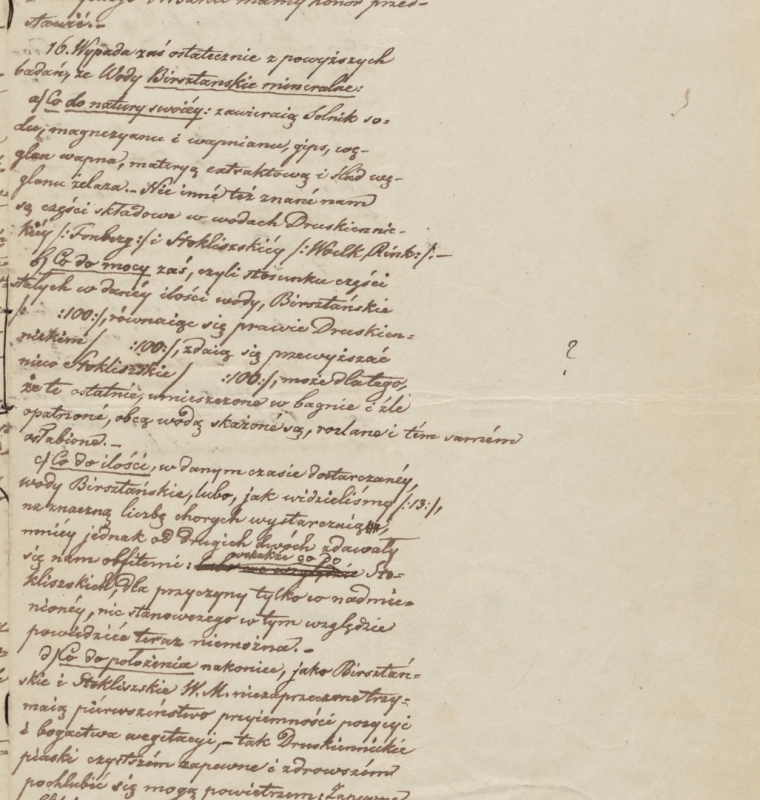 stawić.-
16. Wypada zaś ostatecznie z powyższych
badań, że Wody Birsztanskie mineralne:
a) Co do natury swoiéy: zawieraią Solnik so-
du, magnezyanu i wapnianu, gips, wę-
glan wapna, materyą extraktową i ślad wę-
glanu żelaza. - Nie inné téż znané nam
są części składowe w wodach Druskiennic-
kiéy /:Fonberg:/ i Stokliszkiéy /:Woelk, Rink:/. -
b) Co do mocy zaś, czyli stosunku części
stałych w danéy ilości wody, Birsztańskie
/: :100:/, równaiąc się prawie Druskien-
nickim / :100:/, zdaią się przewyższać
nieco Stokliszkie / :100:/, może dla tego,
że te ostatnie, umieszczone w bagnie i źle
opatrzoné, obcą wodą skażoné są, rozlane i tém samém
osłabione. -
c) Co do ilości, w danym czasie dostarczanéy,
wody Birsztańskie, lubo, jak widzieliśmy /:13:/,
na znaczną liczbę chorych wystarczaią,
mniéy jednak od drugich dwóch zdawały
się nam obfitemi: wszakże co do Sto-
kliszskich, dla przyczyny tylko co nadmie-
nionéy, nic stanowczego w tym względzie
powiedzieć teraz niemożna. -
d) Co do położenia nakoniec, jako Birsztań-
skie i Stokliszskie W. M. niezaprzeczone trzy-
maią piérwszeństwo przyiemności pozycyi
i bogactwa wegetacyi, - tak Druskiennickie
piaski czystszém zapewne i zdrowszém
pochlubić się mogą powietrzem: Zapewne
?